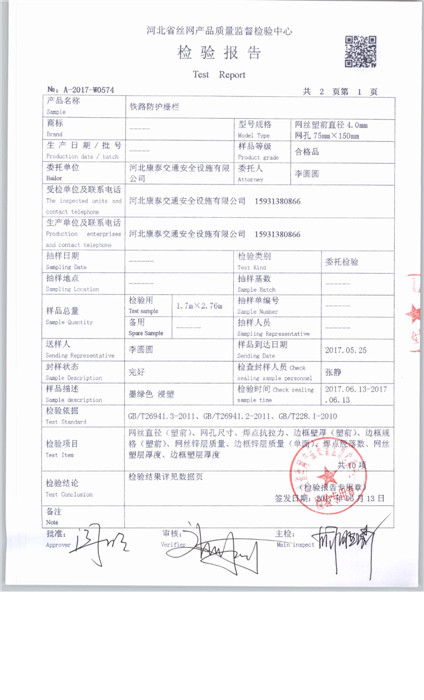 河北省丝网产品质量监督检验中心
检验报告
Test Report
№: A-2017-W0574
共 2 页第 1 页
产品名称 铁路防护栅栏
Sample
商标 ----- 型号规格 网丝塑前直径 4.0mm
Brand Model Type 网孔 75mm×150mm
生产日期/批号 ----- 样品等级 合格品
Production date / batch Product grade
委托单位 河北康泰交通安全设施有限公司 委托人 李圆圆
Bailor Attorney
受检单位及联系电话 河北康泰交通安全设施有限公司 15931380866
The inspected units and
contact telephone
生产单位及联系电话 河北康泰交通安全设施有限公司 15931380866
Production enterprises
and contact telephone
抽样日期 ----- 检验类别 委托检验
Sampling Date Test Kind
抽样地点 ----- 抽样基数 -----
Sampling Location Sample Batch
样品总量 检验用 1.7m×2.76m 抽样单编号 -----
Sample Quantity Test sample Sample Number
备用 ----- 抽样人员 -----
Spare Sample Sampling Representative
送样人 李圆圆 样品到达日期 2017.05.25
Sending Representative Sending Date
封样状态 完好 检查封样人员 Check 张静
Sample Description sealing sample personnel
样品描述 墨绿色 浸塑 检验时间 Check sealing 2017.06.13-2017
Sample description sample time .06.13
检验依据 GB/T26941.3-2011、GB/T26941.2-2011、GB/T228.1-2010
Test Standard
检验项目 网丝直径(塑前)、网孔尺寸、焊点抗拉力、边框壁厚(塑前)、边框规
Test Item 格(塑前)、网丝锌层质量、边框锌层质量(单面)、焊点脱落数、网丝
塑层厚度、边框塑层厚度
共 10 项
检验结论 检验结果详见数据页
Test Conclusion (检验报告专用章)
签发日期: 2017年06月13日
备注
Note
批准: 审核: 主检:
Approver Verifier Main inspect